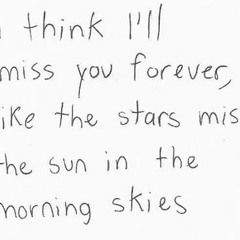 I think I'll
miss you forever,
like the stars mis
the sun in the
morning skies